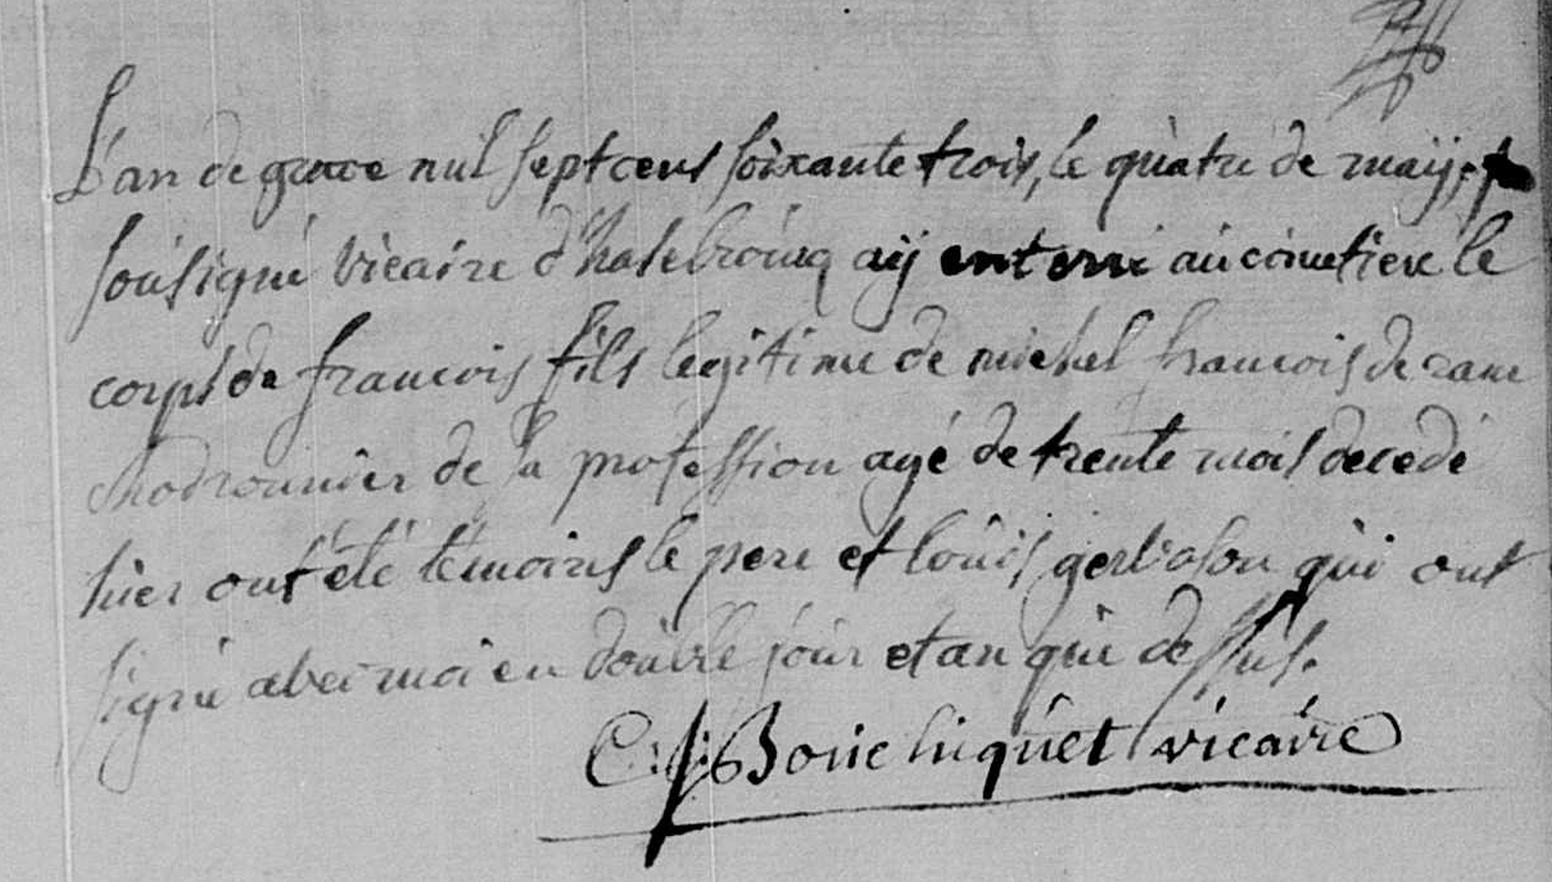 L'an de grace mil sept cens soixante trois, le quatre de maÿ, je
sousigné vicaire d'hasebroucq aÿ enterré au cimetiere le
corps de francois fils legitime de michel francois de rame
chodronnier de sa profession agé de trente mois decedé
hier ont été témoins le pere et loüis gerbason qui ont
signé avec moi en double jour et an que dessus.
C: J: Bouchiquet vicaire